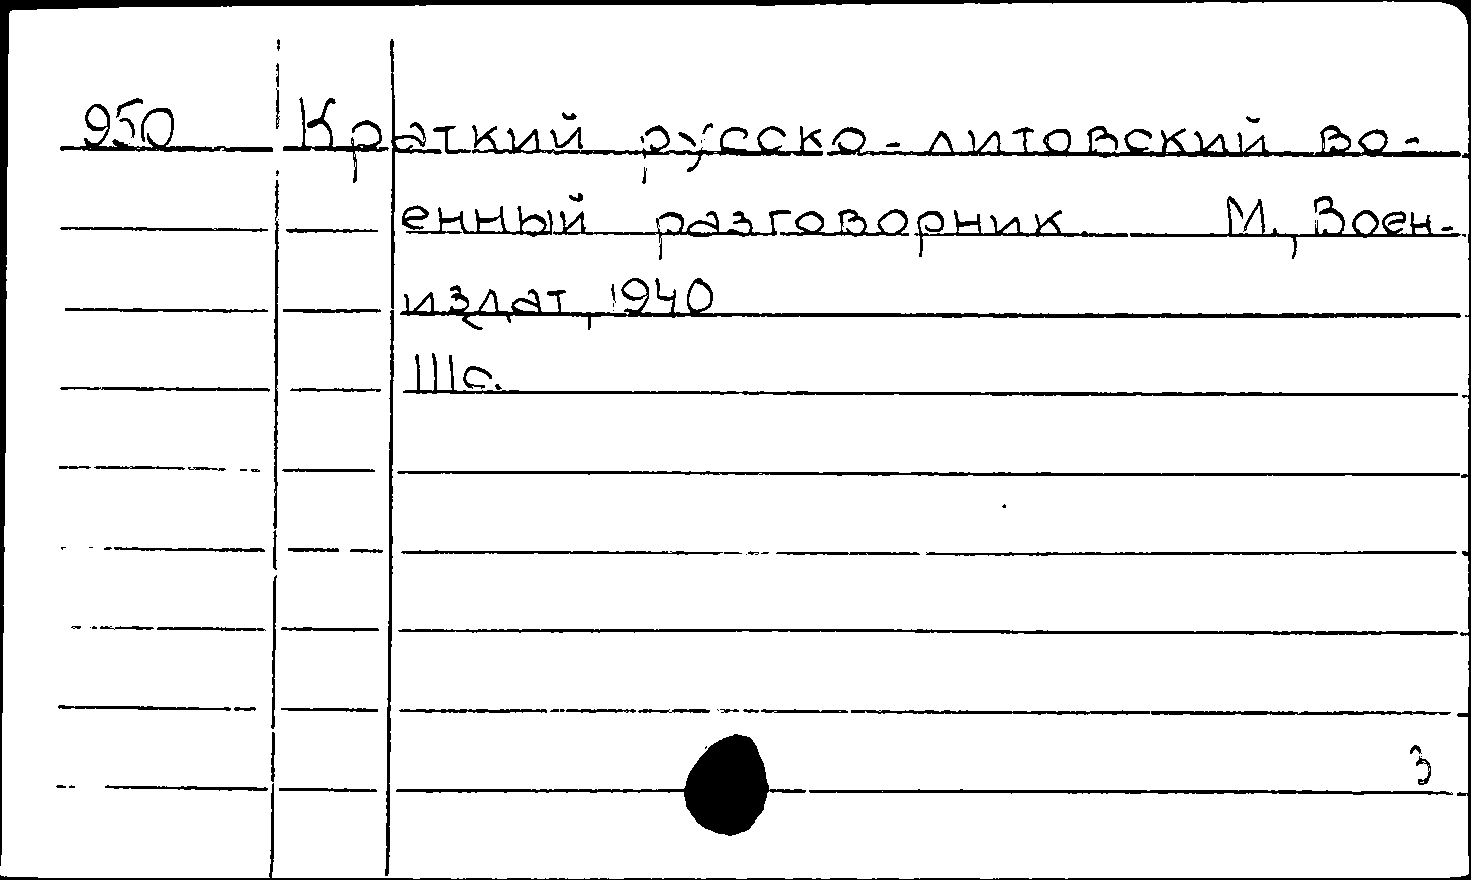 950 Краткий русско-литовский во-
енный разговорник. М., Воен-
издат, 1940
111с.
3